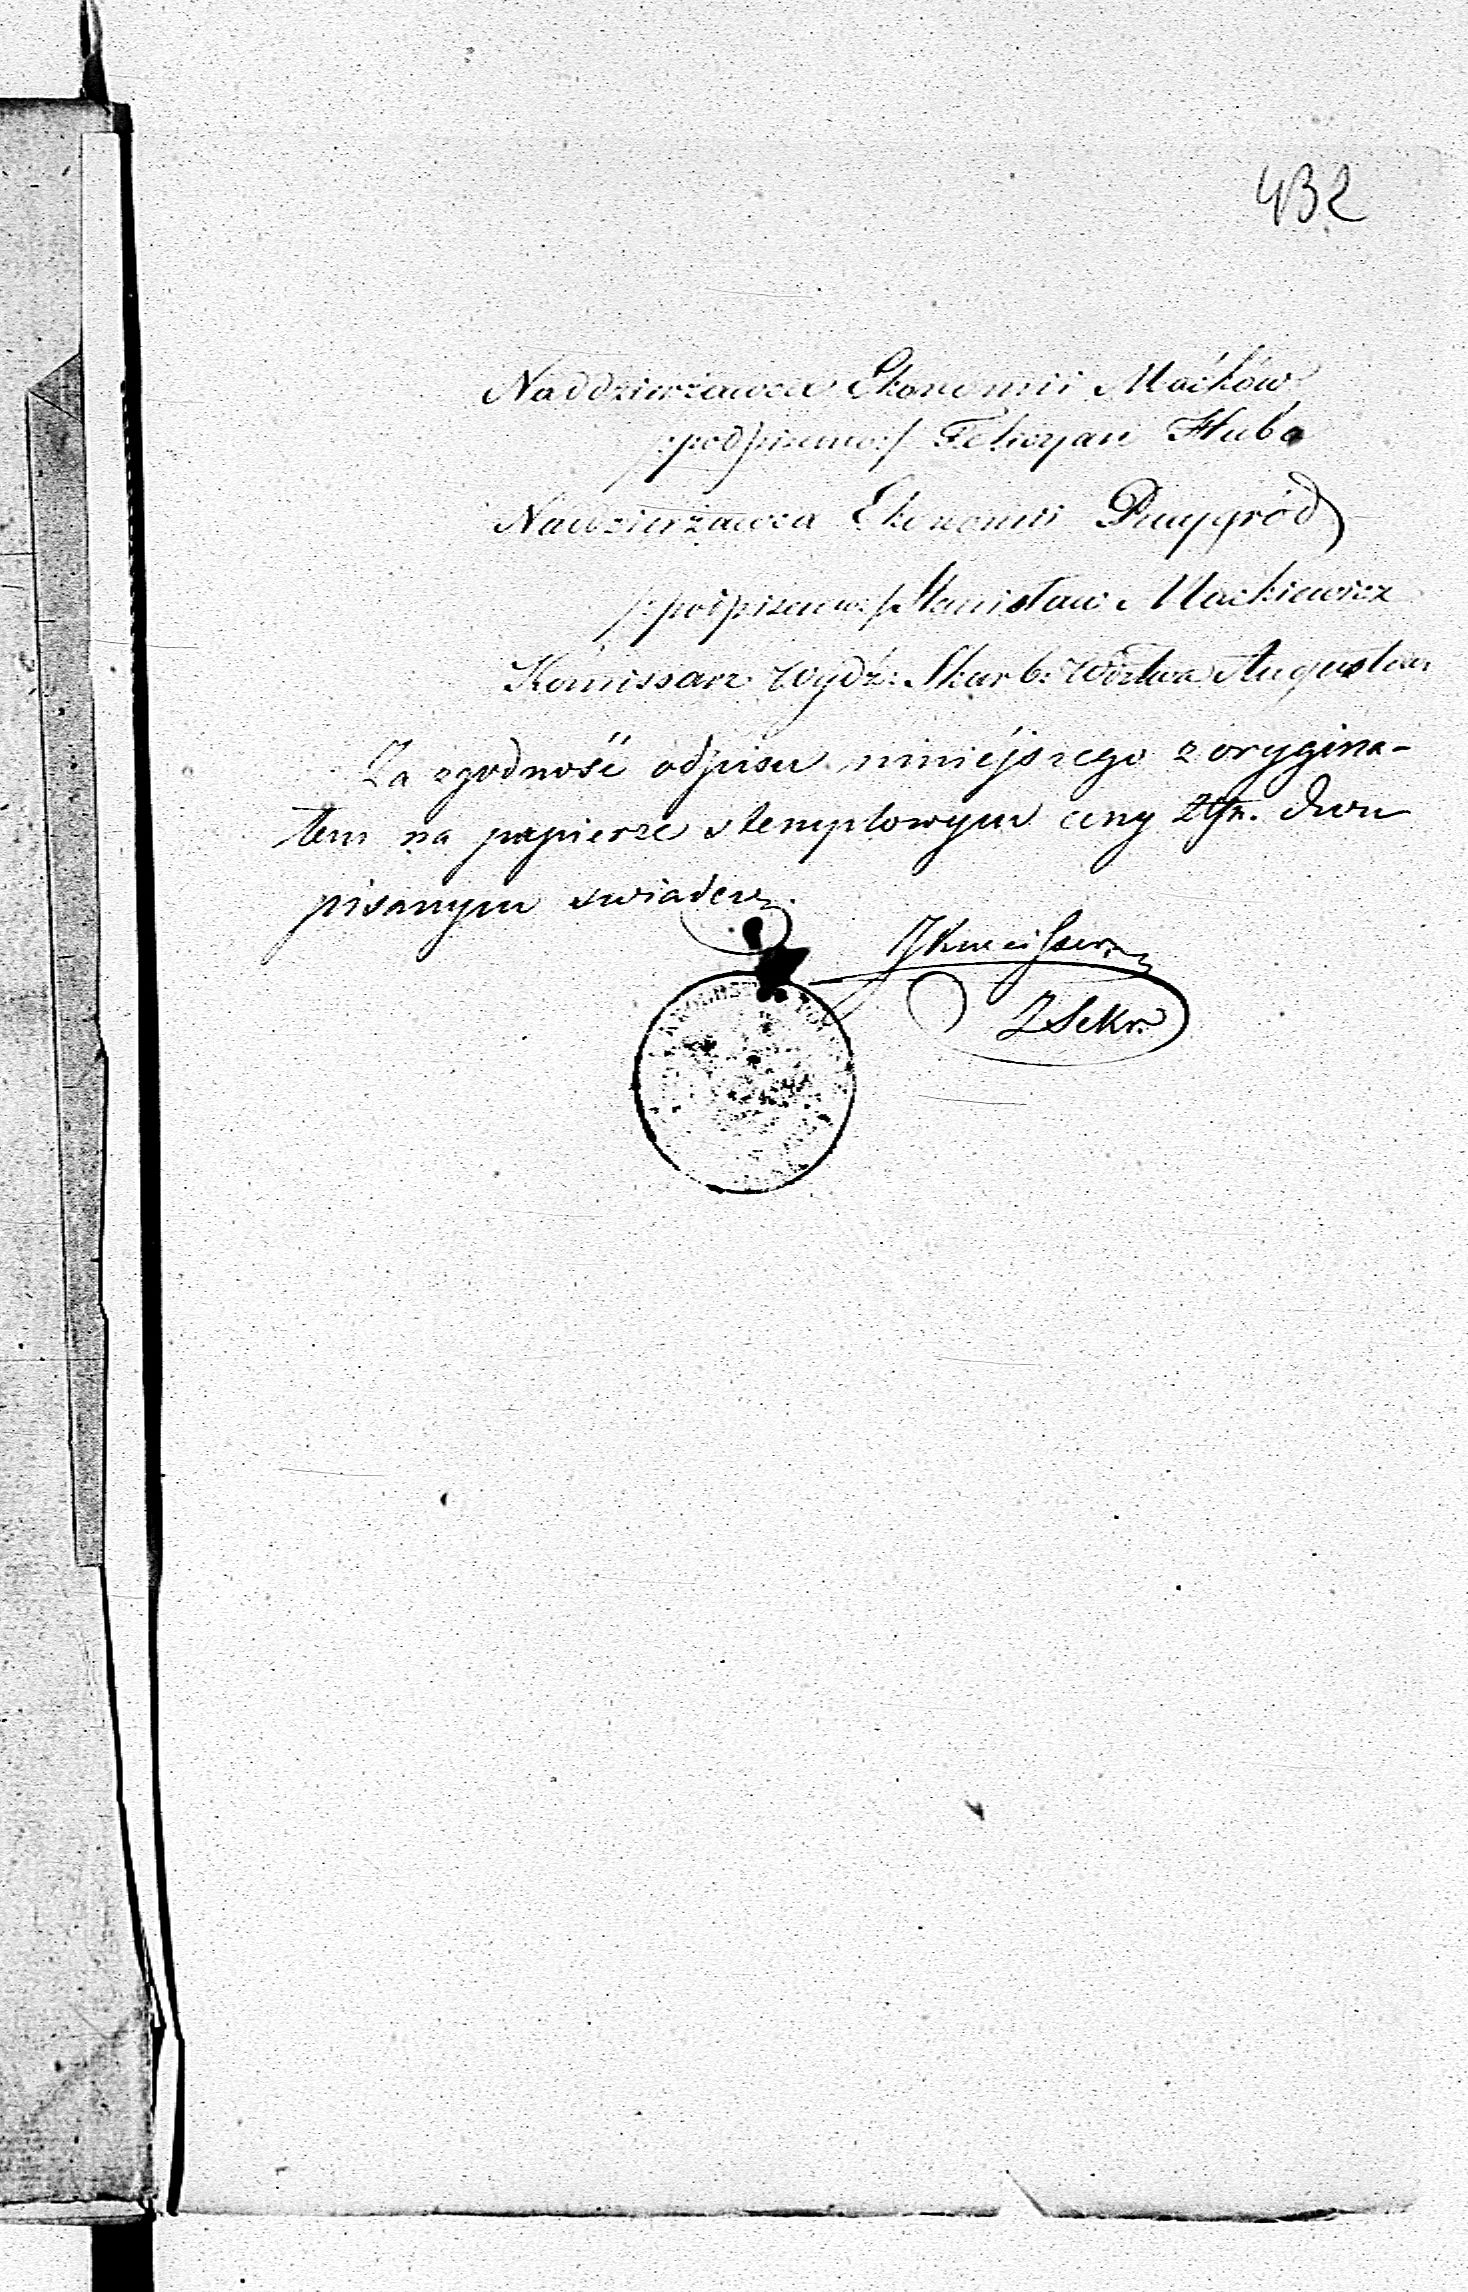 432
Naddzierżawca Ekonomii Maćków
/:podpisano:/ Felicyan Huba
Naddzierżawca Ekonomii Raygród
/:podpisano:/ Stanisław Mackiewicz
Kommissarz Wydz: Skarb: Wodztwa Augustow
Za zgodność odpisu niniejszego z orygina-
łem na papierze stemplowym ceny Złp. dwu
pisanym swiadczę.
ZSekr.